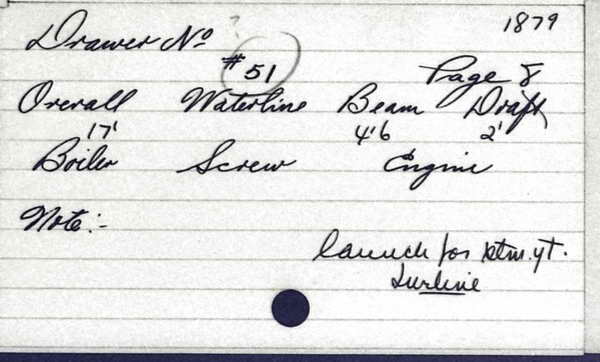 1879
Drawer No ?
#51
Page 8
Overall Waterline Beam Draft
17' 4'6 2'
Boiler Screw Engine
Note:-
launch for stm. yt.
Lurline